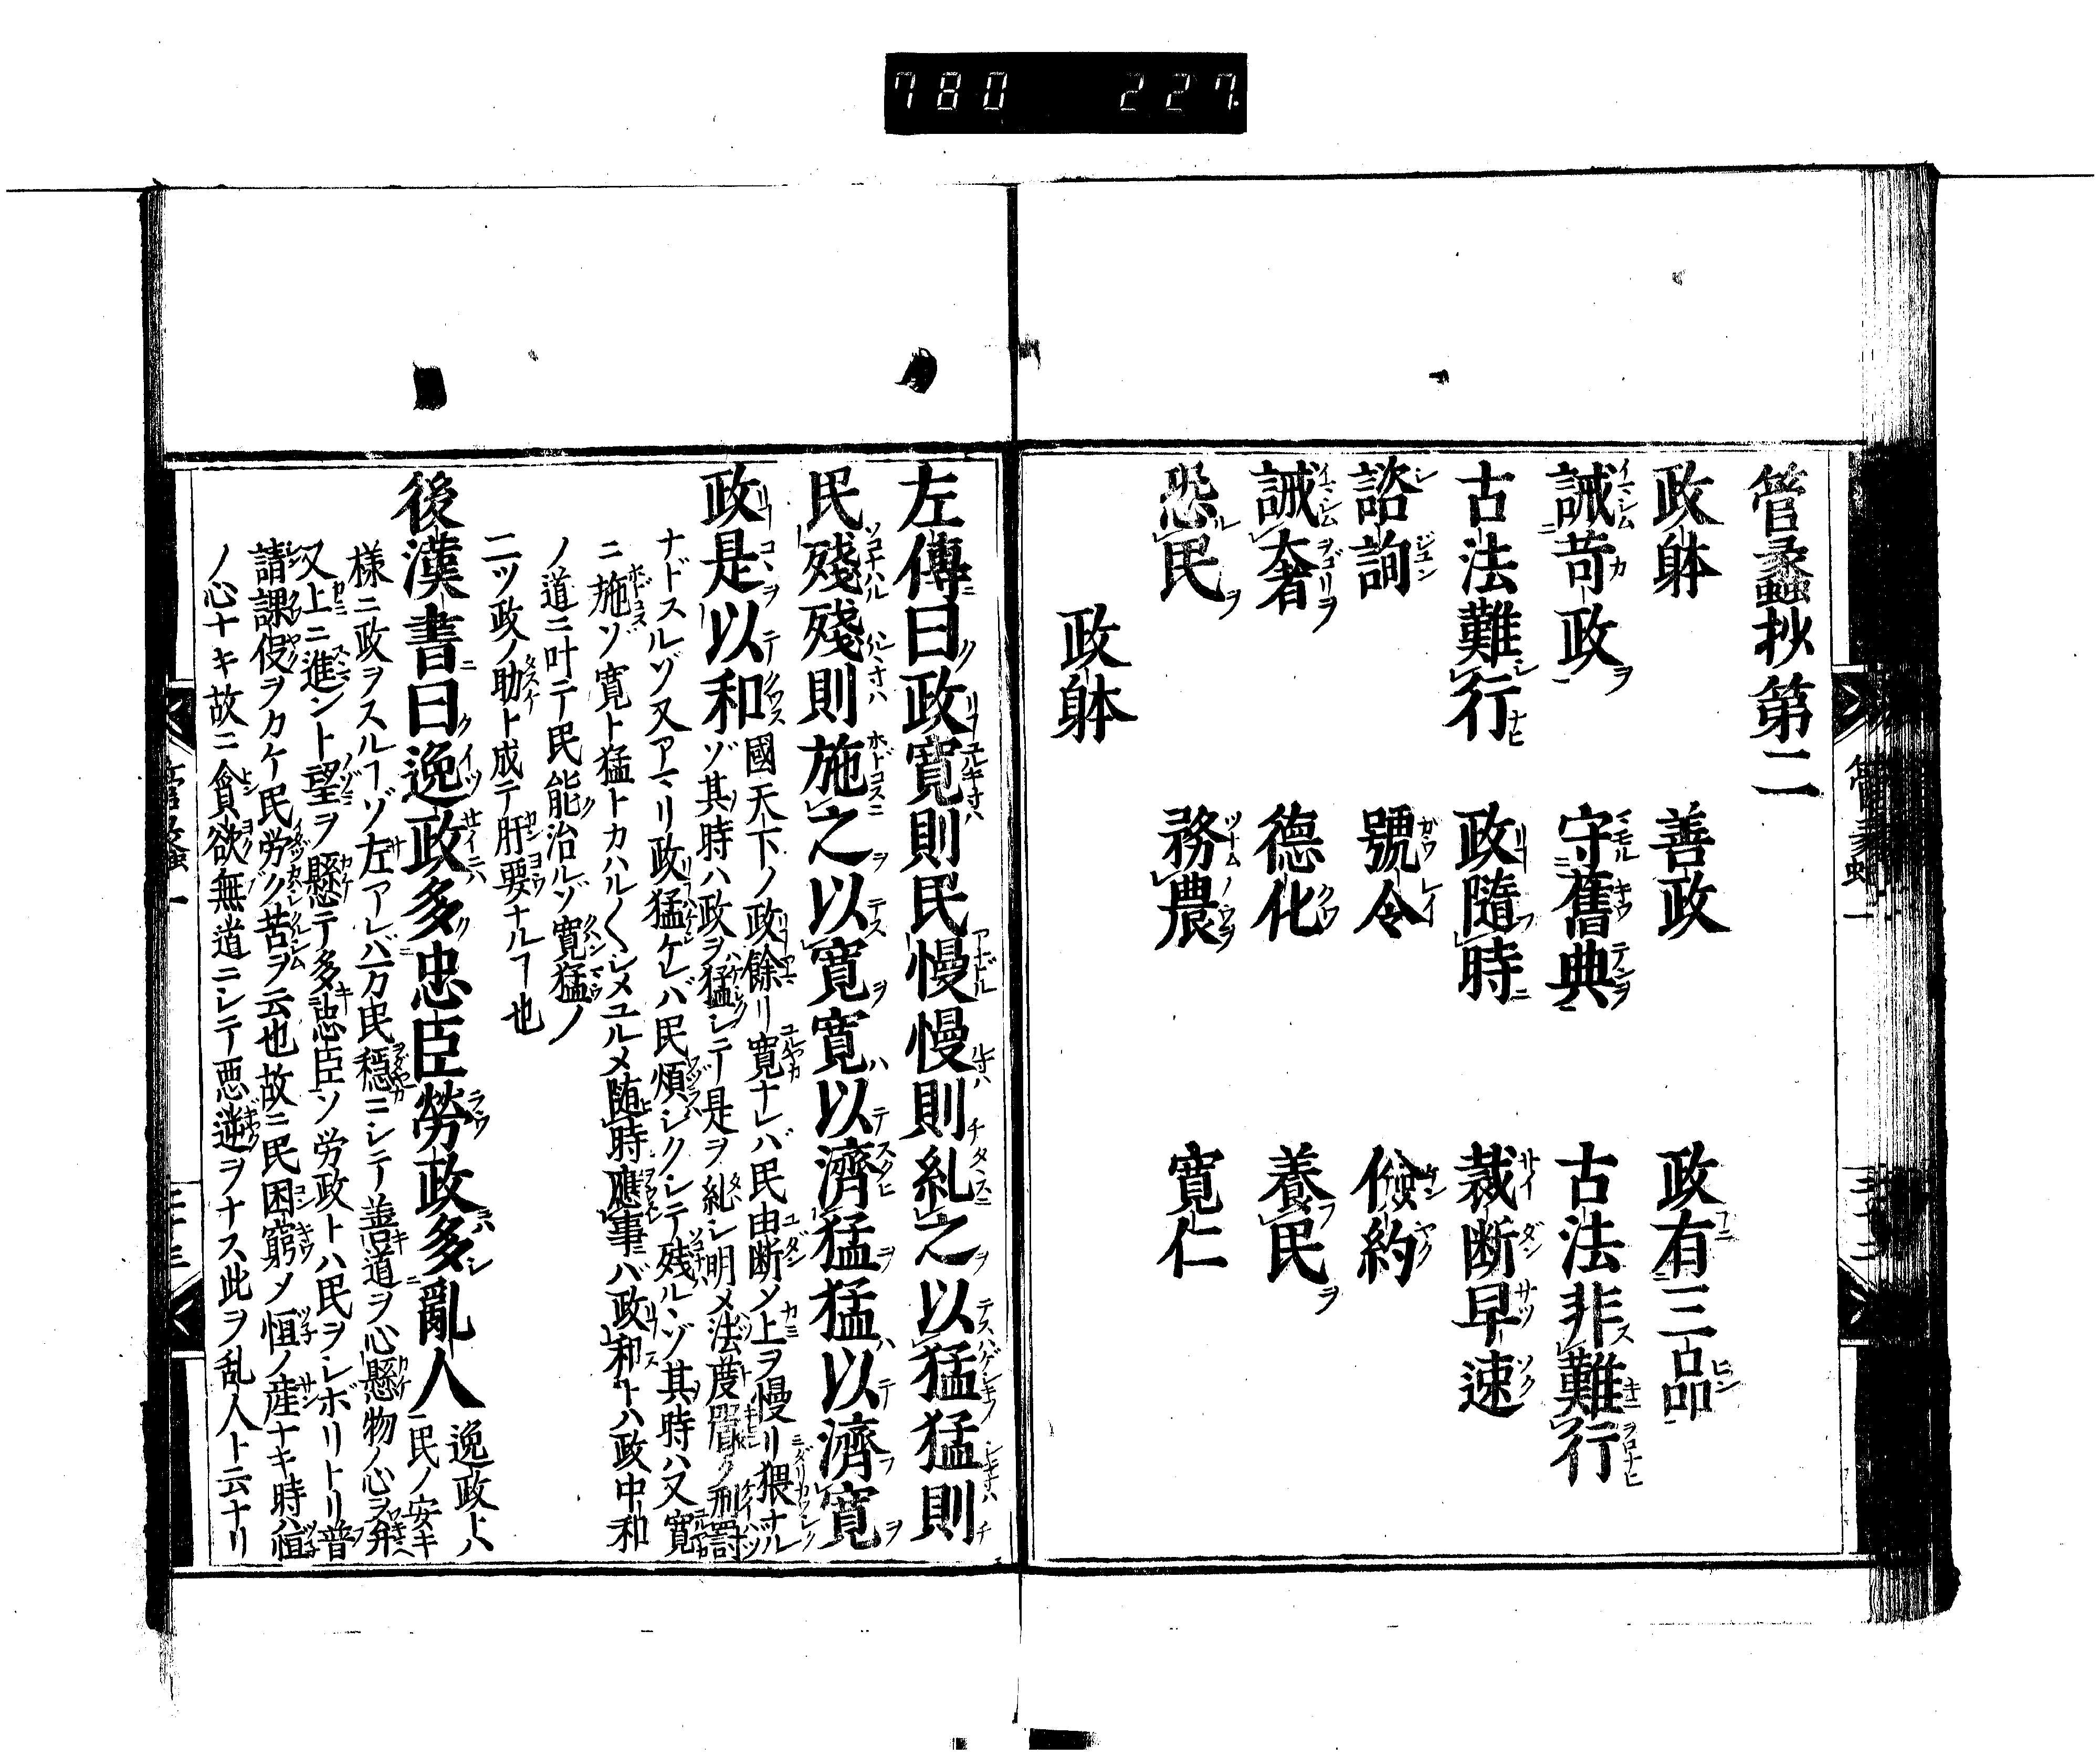 780 227.
管蠡抄第二
政躰 善政 政有三品
誡苛政 守舊典 古法非難行
古法難行 政隨時 裁断早速
諮詢 號令 倹約
誡奢 德化 養民
恐民 務農 寛仁
政躰
左傳曰政寛則民慢慢則糺之以猛猛則
民殘殘則施之以寛寛以濟猛猛以濟寛
政是以和
國天下ノ政餘リ寛ナレバ民由断メ上ヲ慢リ猥ナル
ゾ其時ハ政ヲ猛シテ是ヲ糺シ明メ法度嚴ク刑罰
ナドスルゾ又アマリ政猛ケレバ民煩シクシテ残ルヽゾ其時ハ又寛
ニ施ゾ寛ト猛トカハル〱シメユルメ随時應事バ政和トハ政中和
ノ道ニ叶テ民能治ルゾ寛猛ノ
二ツ政ノ助ト成テ肝要ナルヿ也
後漢書曰逸政多忠臣勞政多亂人
逸政トハ
民ノ安キ
様ニ政ヲスルヿゾ左アレバ万民穏ニシテ善道ヲ心懸物ノ心ヲ弁
又上ニ進ント望ヲ懸テ多忠臣ソ労政トハ民ヲシボリトリ普
請課役ヲカケ民労ク苦ヲ云也故ニ民困窮メ恒ノ産ナキ時ハ恒
ノ心ナキ故ニ貪欲無道ニシテ悪逆ヲナス此ヲ乱人ト云ナリ